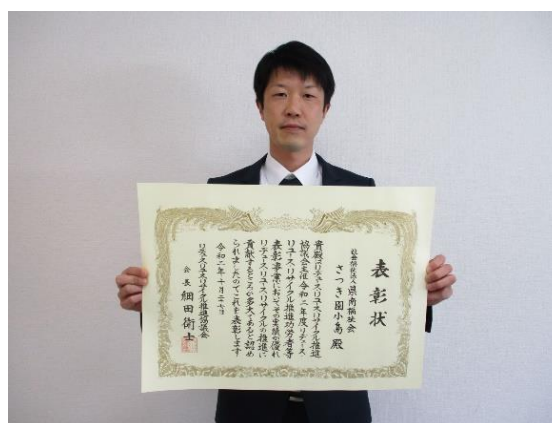 表彰状
社会福祉法人 県南福祉会
さつき園小島 殿
貴殿はリデュースリユースリサイクル推進
協議会主催令和二年度リデュース
リユースリサイクル推進功労者等
表彰事業においてその実績が優れ
リデュースリユースリサイクルの推進に
貢献するところが多大であると認め
られましたのでこれを表彰します
令和二年十月二十七日
リデュースリユースリサイクル推進協議会
会長 細田衛士